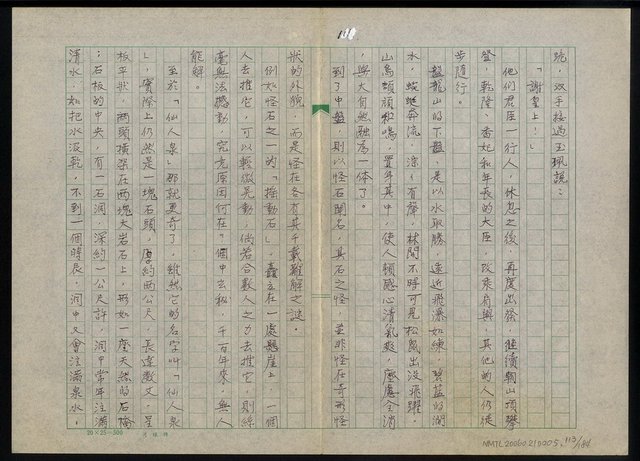 111
跪,双手接過玉珮說:
「謝皇上!」
他們君臣一行人,休息之後,再度出發,繼續朝山頂攀
登,乾隆、香妃和年長的大臣,改乘肩輿,其他的人仍徒
步隨行。
盤龍山的下盤,是以水取勝,遠近飛瀑如練,碧藍的湖
水,蜿蜒奔流,淙淙有聲,林間不時可見松鼠出沒飛躍,
山鳥頻頻和鳴,置身其中,使人頓感心清氣爽,塵慮全消
,與大自然融為一体了。
到了中盤,則以怪石聞名,其石之怪,並非怪在奇形怪
狀的外貌,而是怪在各有其千載難解之謎。
例如怪石之一的「搖動石」,矗立在一處懸崖上,一個
人去推它,可以輕微晃動,倘若合數人之力去推它,則絲
毫無法撼動,究竟原因何在?個中玄秘,千百年來,無人
能解。
至於「仙人泉」那就更奇了,雖然它的名字叫「仙人泉
」,實際上仍然是一塊石頭,厚約兩公尺,長達數丈,呈
板平狀,兩頭橫架在兩塊大岩石上,形如一座天然的石橋
;石板的中央,有一石洞,深約一公尺許,洞中常年注滿
清水,如把水汲乾,不到一個時辰,洞中又會注滿泉水,
20×25=500
NMTL20060210005, 113/188